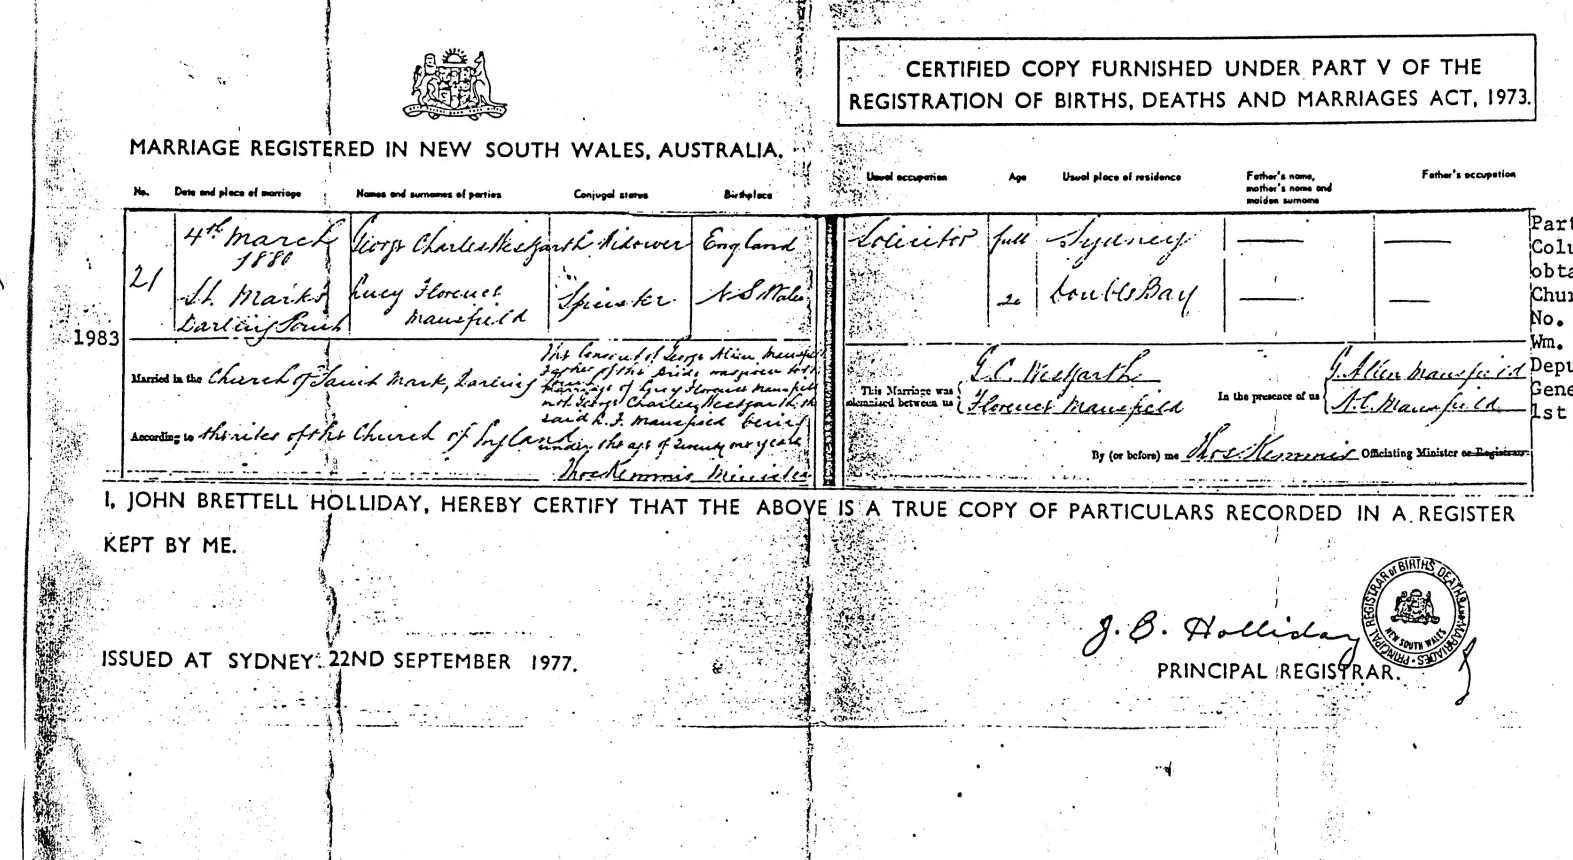 CERTIFIED COPY FURNISHED UNDER PART V OF THE
REGISTRATION OF BIRTHS, DEATHS AND MARRIAGES ACT, 1973.
MARRIAGE REGISTERED IN NEW SOUTH WALES, AUSTRALIA.
No. Date and place of marriage Names and surnames of parties Conjugal status Birthplace Usual occupation Age Usual place of residence Father's name, mother's name and maiden surname Father's occupation
4th March George Charles Westgarth Widower England Solicitor full Sydney
1880
21
St. Marks Lucy Florence Spinster N S Wales 20 Double Bay
Darling Point Mansfield
1983
Part
Colu
obta
Chur
No.
Wm.
Depu
Gene
1st
Married in the Church of Saint Mark, Darling
According to the rites of the Church of England
The Consent of George Allen Mansfield
Father of the Bride was given to the
marriage of Lucy Florence Mansfield
with George Charles Westgarth the
said L. F. Mansfield being
under the age of Twenty one years
Thos Kemmis Minister
This Marriage was solemnised between us G. C. Westgarth
Florence Mansfield
In the presence of us G. Allen Mansfield
Mansfield
By (or before) me Thos Kemmis Officiating Minister or Registrar.
I, JOHN BRETTELL HOLLIDAY, HEREBY CERTIFY THAT THE ABOVE IS A TRUE COPY OF PARTICULARS RECORDED IN A REGISTER
KEPT BY ME.
ISSUED AT SYDNEY. 22ND SEPTEMBER 1977.
J. B. Holliday
PRINCIPAL REGISTRAR.
PRINCIPAL REGISTRAR of BIRTHS DEATHS AND MARRIAGES
NEW SOUTH WALES